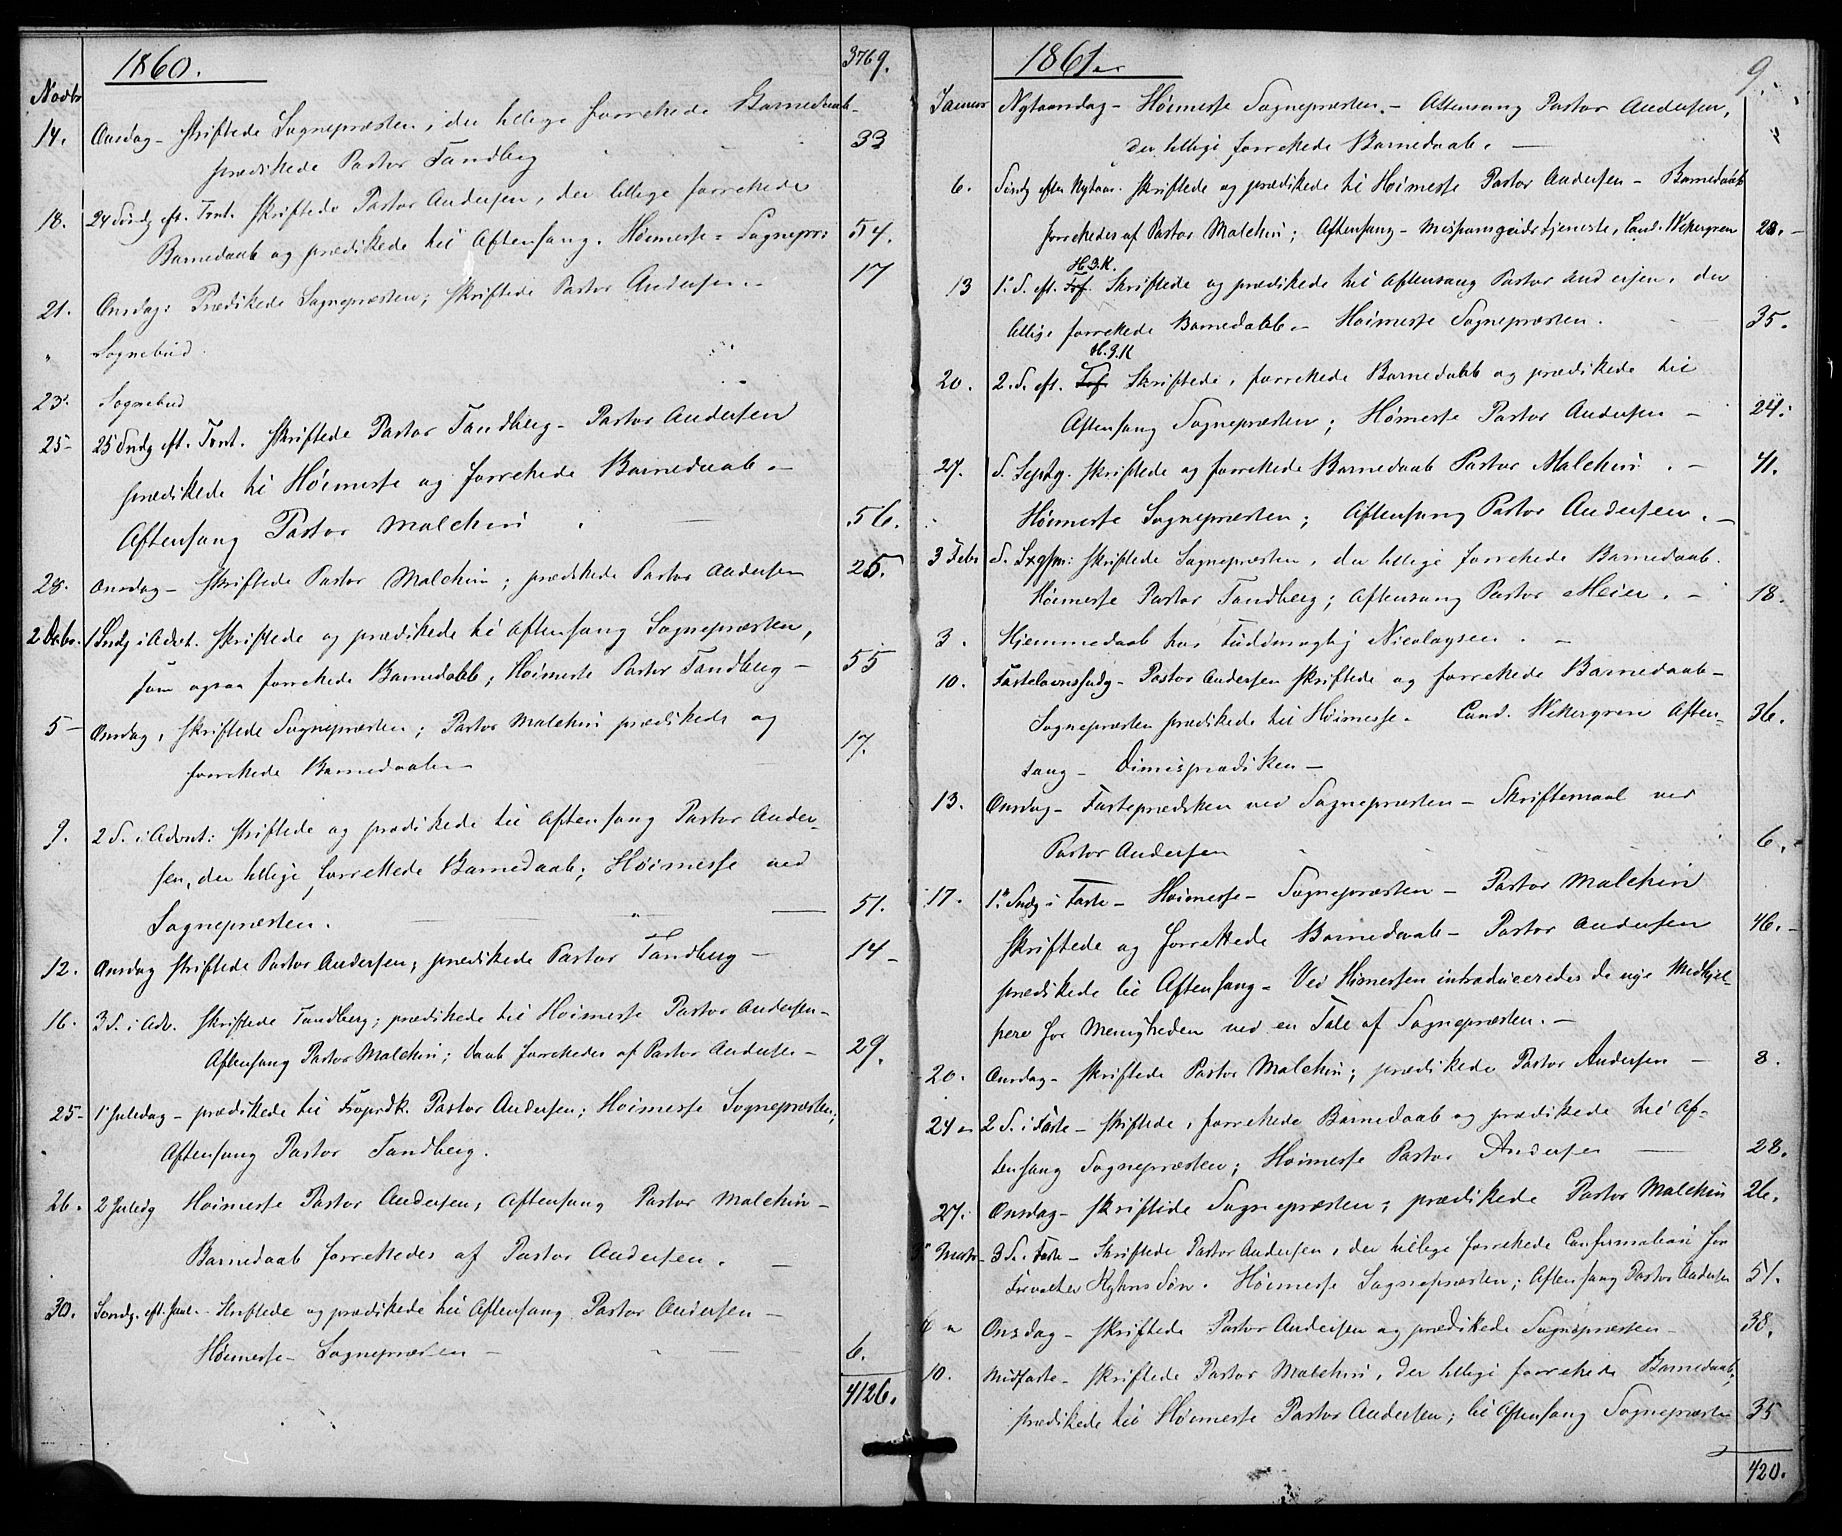 1860.
3769.
Novbr
14. Onsdag - skriftede Sognepræsten, der tillige forrettede Barnedaab -
prædikede Pastor Tandberg 33
18. 24 Søndg eft. Trnt. skriftede Pastor Andersen, der tillige forrettede
Barnedaab og prædikede til Aftensang. Høimesse - Sognepr: 54.
21. Onsdag: Prædikede Sognepræsten; skriftede Pastor Andersen - 17
" Sognebud.
23. Sognebud
25 - 25 Sndg eft. Trnt. skriftede Pastor Tandberg - Pastor Andersen
prædikede til Høimesse og forrettede Barnedaab -
Aftensang Pastor Malchin 56.
28. Onsdag - skriftede Pastor Malchin; prædikede Pastor Andersen 25.
2 Debr. 1 Sndg i Advt. skriftede og prædikede til Aftensang Sognepræsten,
som ogsaa forrettede Barnedaab; Høimesse Pastor Tandberg - 55
5 - Onsdag, skriftede Sognepræsten; Pastor Malchin prædikede og
forrettede Barnedaaben - 17.
9. 2 S. i Advnt: skriftede og prædikede til Aftensang Pastor Ander-
sen, der tillige forrettede Barnedaab; Høimesse ved
Sognepræsten. 51.
12. Onsdag skriftede Pastor Andersen; prædikede Pastor Tandberg - 14 -
16. 3 S. i Adv. skriftede Tandberg; prædikede til Høimesse Pastor Andersen -
Aftensang Pastor Malchin; Daab forrettedes af Pastor Andersen - 29.
25 - 1 Juledag - prædikede til Froprdk. Pastor Andersen; Høimesse Sognepræsten;
Aftensang Pastor Tandberg.
26. 2 Juledg Høimesse Pastor Andersen; Aftensang Pastor Malchin -
Barnedaab forrettedes af Pastor Andersen. -
30. Søndg. eft. Juul. - Skriftede og prædikede til Aftensang Pastor Andersen -
Høimesse - Sognepræsten - 6.
4126.
1861.
9.
Januar Nytaarsdag - Høimesse Sognepræsten - Aftensang Pastor Andersen,
der tillige forrettede Barnedaab. -
6. Søndg efter Nytaar. skriftede og prædikede til Høimesse Pastor Andersen - Barnedaab
forrettedes af Pastor Malchin; Aftensang - Missionsgudstjeneste, Cand. Wekergren 28. -
H.3.K.
13 1. S. eft. Skriftede og prædikede til Aftensang Pastor Andersen, der
tillige forrettede Barnedaab - Høimesse Sognepræsten. 35.
H.3.K
20. 2. S. eft. Skriftede, forrettede Barnedaab og prædikede til
Aftensang Sognepræsten; Høimesse Pastor Andersen - 24.
27. S. Septg. skriftede og forrettede Barnedaab Pastor Malchin. - 41.
Høimesse Sognepræsten; Aftensang Pastor Andersen. -
3 Febr S. Sxgsm: skriftede Sognepræsten, der tillige forrettede Barnedaab.
Høimesse Pastor Tandberg; Aftensang Pastor Meier. - 18.
3. Hjemmedaab hos Fuldmægtig Nicolaysen. -
10. Fastelavnssndg - Pastor Andersen skriftede og forrettede Barnedaab -
Sognepræsten prædikede til Høimesse. Cand. Wekergren Aften- 36.
sang - Dimisprædiken -
13. Onsdag - Fasteprædiken ved Sognepræsten - Skriftemaal ved
Pastor Andersen 6.
17. 1. Sndg i Faste - Høimesse - Sognepræsten - Pastor Malchin
skriftede og forrettede Barnedaab - Pastor Andersen 46. -
prædikede til Aftensang - Ved Høimessen introduceredes de nye Medhjel-
pere for Menigheden ved en Tale af Sognepræsten. -
20. Onsdag - skriftede Pastor Malchin; prædikede Pastor Andersen - 8.
24 - 2 S. i Faste - skriftede, forrettede Barnedaab og prædikede til Af-
tensang Sognepræsten; Høimesse Pastor Andersen - 28.
27. Onsdag - skriftede Sognepræsten; prædikede Pastor Malchin 26.
3 Marts - 3 S. i Faste - Skriftede Pastor Andersen, der tillige forrettede Confirmation for
Forvalter Søn. Høimesse Sognepræsten; Aftensang Pastor Andersen 51.
6 - Onsdag - skriftede Pastor Andersen og prædikede Sognepræsten - 38.
10. Midfaste - skriftede Pastor Malchin, der tillige forrettede Barnedaab;
prædikede til Høimesse Pastor Andersen; til Aftensang Sognepræsten 35
420.